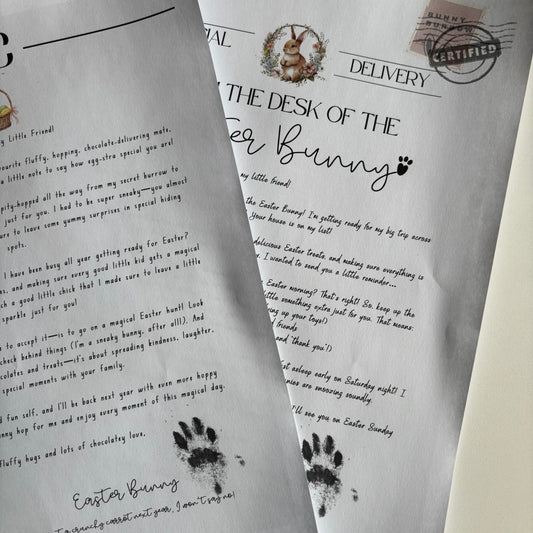 C
y Little Friend!
vourite fluffy, hopping, chocolate-delivering mate,
a little note to say how egg-stra special you are!
pity-hopped all the way from my secret burrow to
just for you. I had to be super sneaky—you almost
ure to leave some yummy surprises in special hiding
spots.
I have been busy all year getting ready for Easter?
es, and making sure every good little kid gets a magical
ch a good little chick that I made sure to leave a little
sparkle just for you!
e to accept it—is to go on a magical Easter hunt! Look
check behind things (I'm a sneaky bunny, after all!). And
colates and treats—it's about spreading kindness, laughter,
special moments with your family.
d fun self, and I'll be back next year with even more hoppy
unny hop for me and enjoy every moment of this magical day.
fluffy hugs and lots of chocolatey love,
Easter Bunny
t a crunchy carrot next year, I won't say no!
CIAL
DELIVERY
BUNNY
BURROW
CERTIFIED
THE DESK OF THE
ter Bunny
my little friend!
the Easter Bunny! I'm getting ready for my big trip across
Your house is on my list!
delicious Easter treats, and making sure everything is
I wanted to send you a little reminder...
Easter morning? That's right! So, keep up the
little something extra just for you. That means:
ring up your toys!)
d friends
and 'thank you'!)
st asleep early on Saturday night! I
nies are snoozing soundly.
I'll see you on Easter Sunday